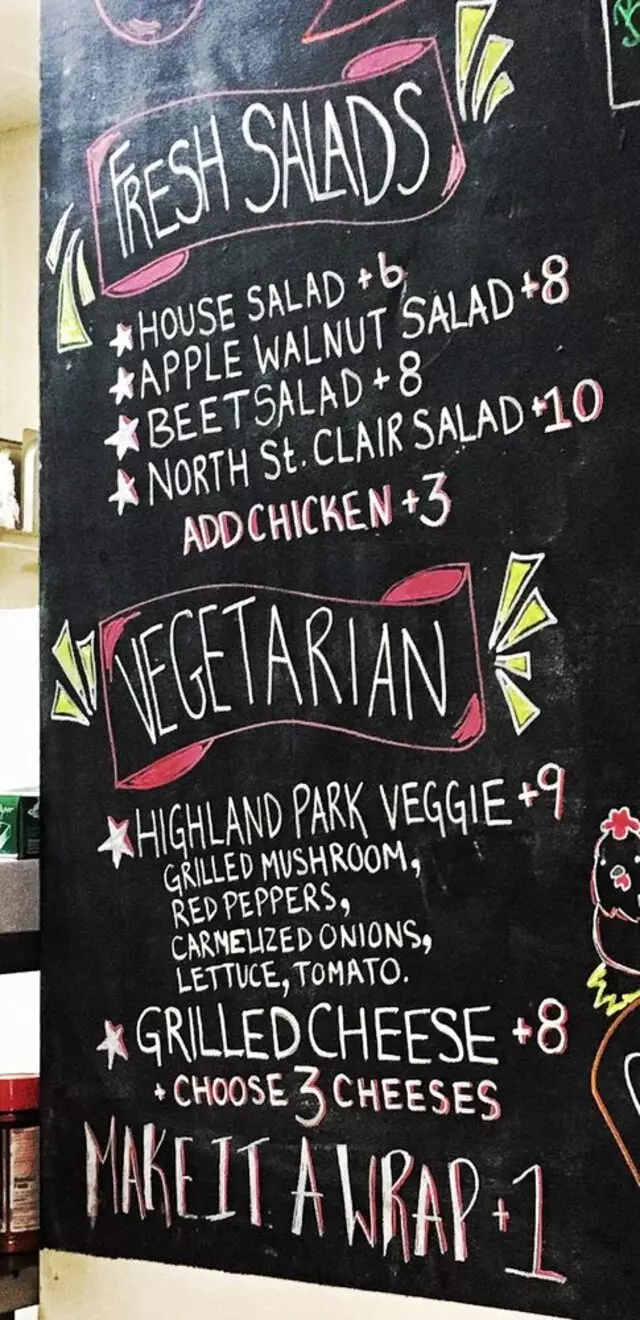 FRESH SALADS
HOUSE SALAD +6
APPLE WALNUT SALAD +8
BEET SALAD +8
NORTH St. CLAIR SALAD +10
ADD CHICKEN +3
VEGETARIAN
HIGHLAND PARK VEGGIE +9
GRILLED MUSHROOM,
RED PEPPERS,
CARMELIZED ONIONS,
LETTUCE, TOMATO.
GRILLED CHEESE +8
+ CHOOSE 3 CHEESES
MAKE IT A WRAP +1